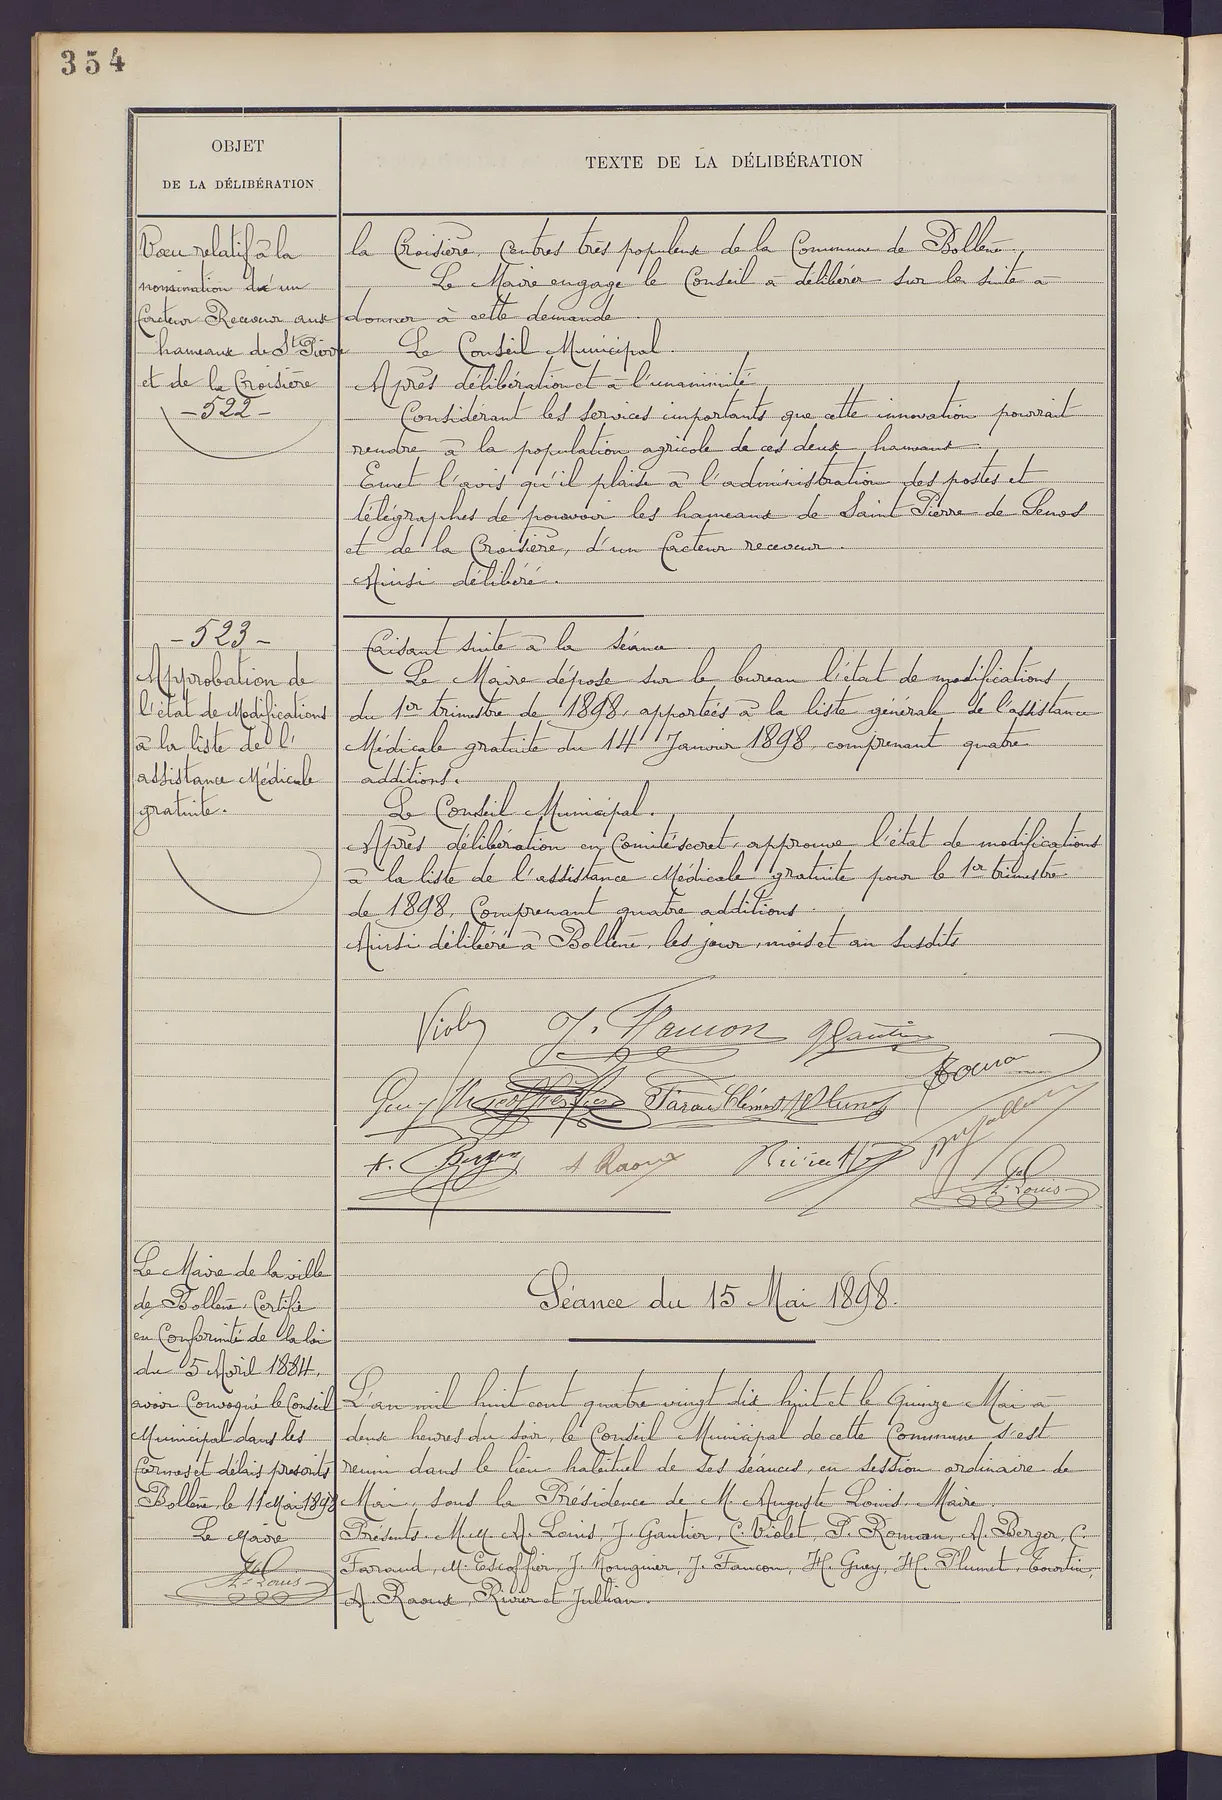 354
OBJET
DE LA DÉLIBÉRATION
TEXTE DE LA DÉLIBÉRATION
Vœu relatif à la
nomination d'un
facteur Receveur aux
hameaux de St Pierre
et de la Croisière
- 522 -
la Croisière, centres très populeux de la Commune de Bollène.
Le Maire engage le Conseil à délibérer sur la suite à
donner à cette demande.
Le Conseil Municipal.
Après délibération et à l'unanimité
Considérant les services importants que cette innovation pourrait
rendre à la population agricole de ces deux hameaux.
Emet l'avis qu'il plaise à l'administration des postes et
télégraphes de pourvoir les hameaux de Saint Pierre de Senos
et de la Croisière, d'un facteur receveur.
Ainsi délibéré.
- 523 -
Approbation de
l'état de Modifications
à la liste de l'
assistance Médicale
gratuite.
Faisant suite à la séance
Le Maire dépose sur le bureau l'état de modifications
du 1er trimestre de 1898, apportées à la liste générale de l'assistance
Médicale gratuite du 14 Janvier 1898, comprenant quatre
additions.
Le Conseil Municipal.
Après délibération en Comité secret, approuve l'état de modifications
à la liste de l'assistance Médicale gratuite pour le 1er trimestre
de 1898, Comprenant quatre additions.
Ainsi délibéré à Bollène, les jour, mois et an susdits
Violet J. Gautier
Guey Faraud Clément H Plumet
A. Berger A Raoux
A. Louis
Le Maire de la ville
de Bollène, Certifie
en Conformité de la loi
du 5 Avril 1884,
avoir Convoqué le Conseil
Municipal dans les
formes et délais prescrits
Bollène, le 11 Mai 1898
Le Maire
A. Louis
Séance du 15 Mai 1898.
L'an mil huit cent quatre vingt dix huit et le Quinze Mai à
deux heures du soir, le Conseil Municipal de cette Commune s'est
réuni dans le lieu habituel de ses séances, en session ordinaire de
Mai, sous la Présidence de M. Auguste Louis, Maire.
Présents. M.M. A. Louis, J. Gautier, C. Violet, P. Roman, A. Berger, C.
Faraud, M. Escoffier, J. Mougnier, J. Faucon, H. Guey, H. Plumet, Tourtin,
A. Raoux, Rivier et Jullian.